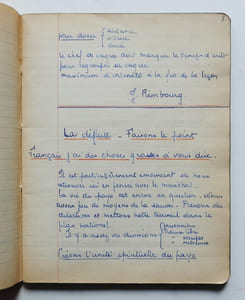 pour doser { distance
vitesse
durée
le chef de vague doit marquer le temps d'arrêt
pour regrouper sa vague.
maximum d'intensité à la fin de la leçon
J. Rimbourg
La défaite - Faisons le point
Français j'ai des choses graves à vous dire.
Il est particulièrement émouvant de nous
retrouver ici en pensée avec le maréchal.
La vie du pays est encore en question. Nous
avons peu de moyens de la sauver. Prenons des
directives et mettons notre travail dans le
plan national
Il y a assez de divisions { prisonniers
" occupée
Créons l'unité spirituelle du pays